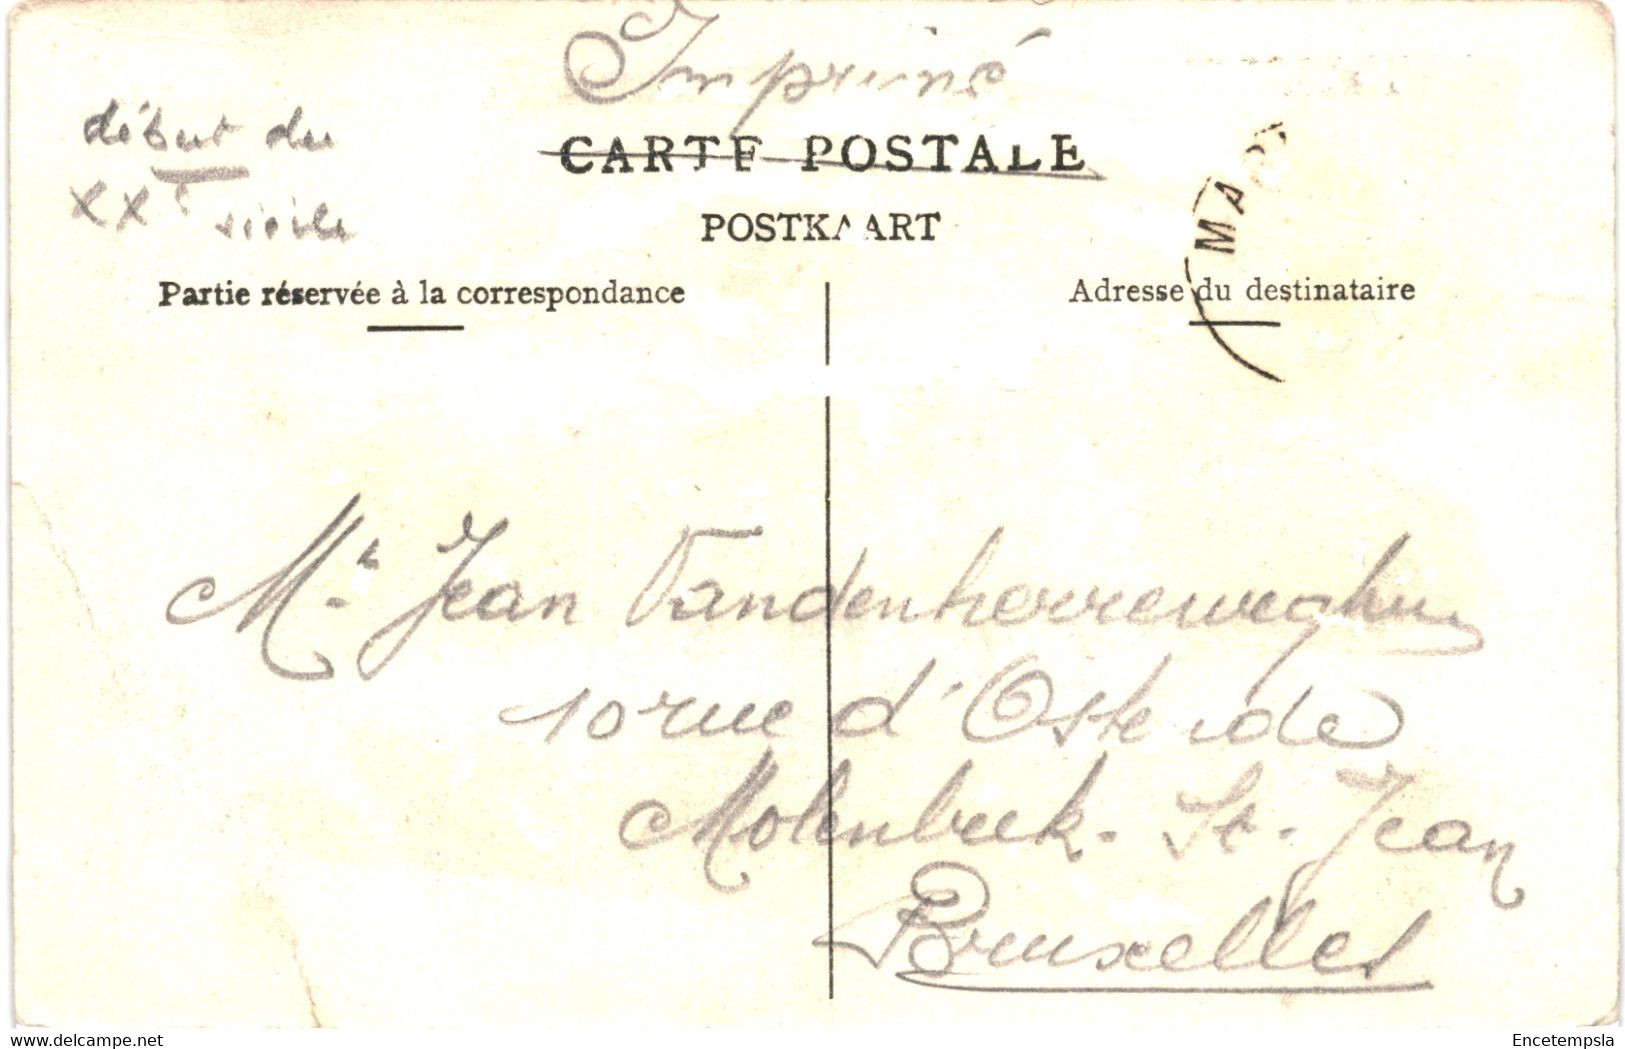 Imprimé
début du
XXe siècle
CARTE POSTALE
POSTKAART
MA
Partie réservée à la correspondance
Adresse du destinataire
Mr. Jean Vandenherreweghe
10 rue d'Ostende
Molenbeek-St-Jean
Bruxelles
www.delcampe.net
Encetempsla